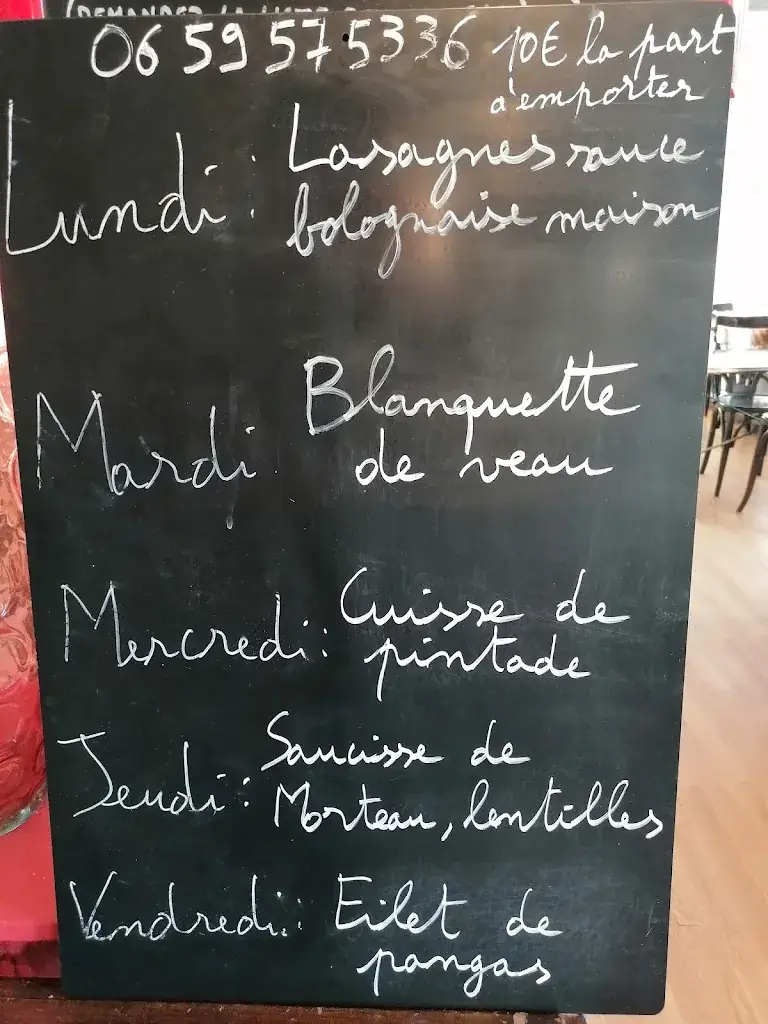 (DEMANDEZ LA
06 59 57 53 36 10€ la part
à emporter
Lundi : Lasagnes sauce
bolognaise maison
Mardi Blanquette
de veau
Mercredi : Cuisse de
pintade
Jeudi : Saucisse de
Morteau, lentilles
Vendredi : Filet de
pangas